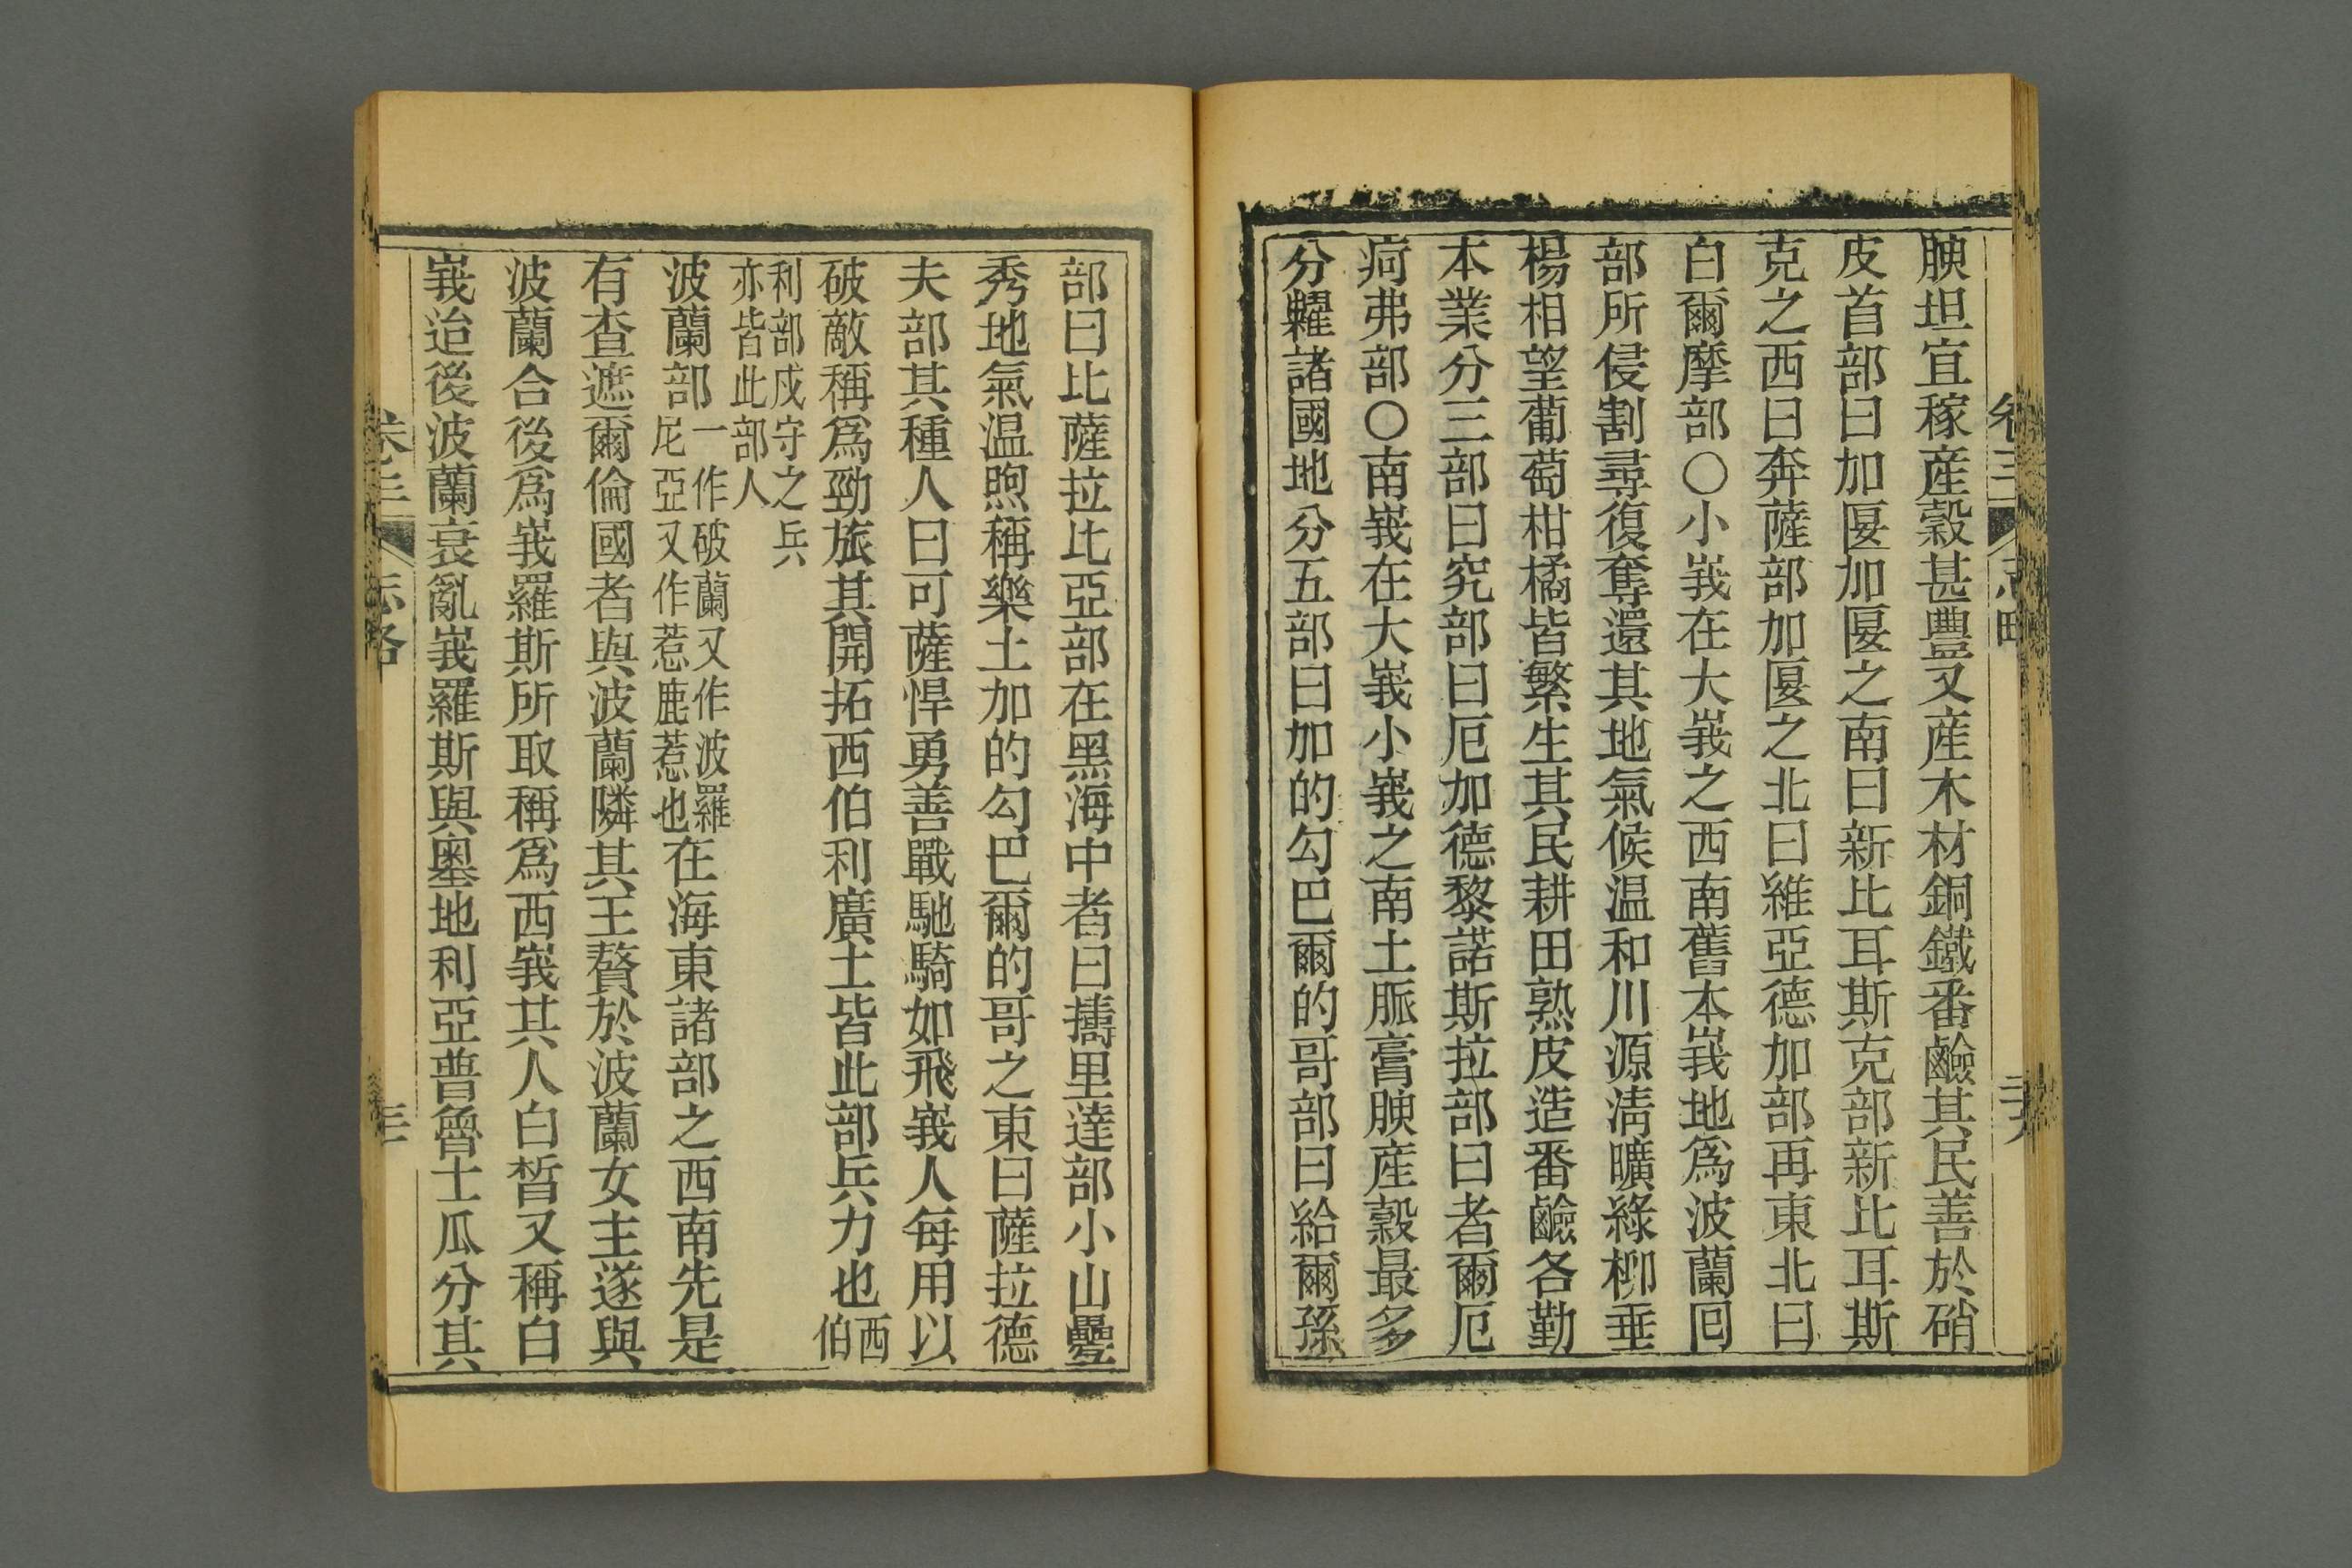 腴坦宜稼産穀甚豐又産木材銅鐵番鹼其民善於硝
皮首部曰加匽加匽之南曰新比耳斯克部新比耳斯
克之西曰奔薩部加匽之北曰維亞德加部再東北曰
白爾摩部○小峩在大峩之西南舊本峩地爲波蘭回
部所侵割尋復奪還其地氣候温和川源淸曠綠柳垂
楊相望葡萄柑橘皆繁生其民耕田熟皮造番鹼各勤
本業分三部曰究部曰厄加德黎諾斯拉部曰者爾厄
疴弗部○南峩在大峩小峩之南土脈膏腴産穀最多
分糶諸國地分五部曰加的勾巴爾的哥部曰給爾孫
部曰比薩拉比亞部在黑海中者曰擣里達部小山疊
秀地氣温煦稱樂土加的勾巴爾的哥之東曰薩拉德
夫部其種人曰可薩悍勇善戰馳騎如飛峩人每用以
破敵稱爲勁旅其開拓西伯利廣土皆此部兵力也西伯
利部戍守之兵
亦皆此部人
波蘭部一作破蘭又作波羅尼亞又作惹鹿惹也在海東諸部之西南先是
有查遮爾倫國者與波蘭隣其王贅於波蘭女主遂與
波蘭合後爲峩羅斯所取稱爲西峩其人白皙又稱白
峩迨後波蘭衰亂峩羅斯與奧地利亞普魯士瓜分其
卷三